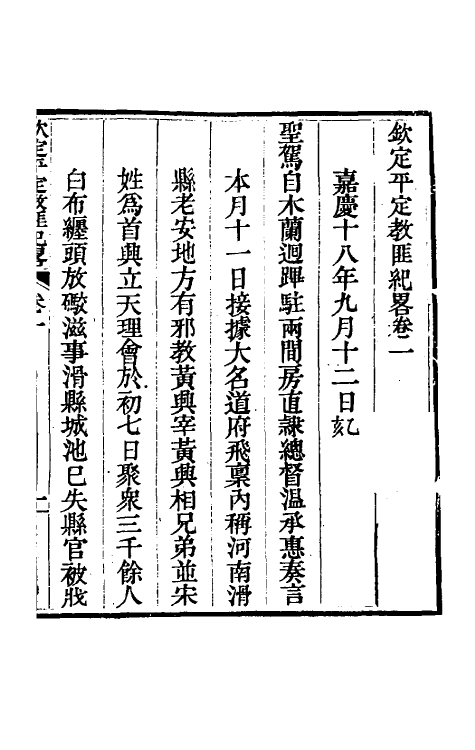 欽定平定教匪紀畧卷一
嘉慶十八年九月十二日
聖駕自木蘭迴蹕駐兩間房直隷總督温承惠奏言
本月十一日接據大名道府飛稟內稱河南滑
縣老安地方有邪教黃興宰黃興相兄弟並宋
姓爲首興立天理會於初七日聚衆三千餘人
白布纏頭放礮滋事滑縣城池已失縣官被戕
欽定平定教匪紀畧
卷一
一